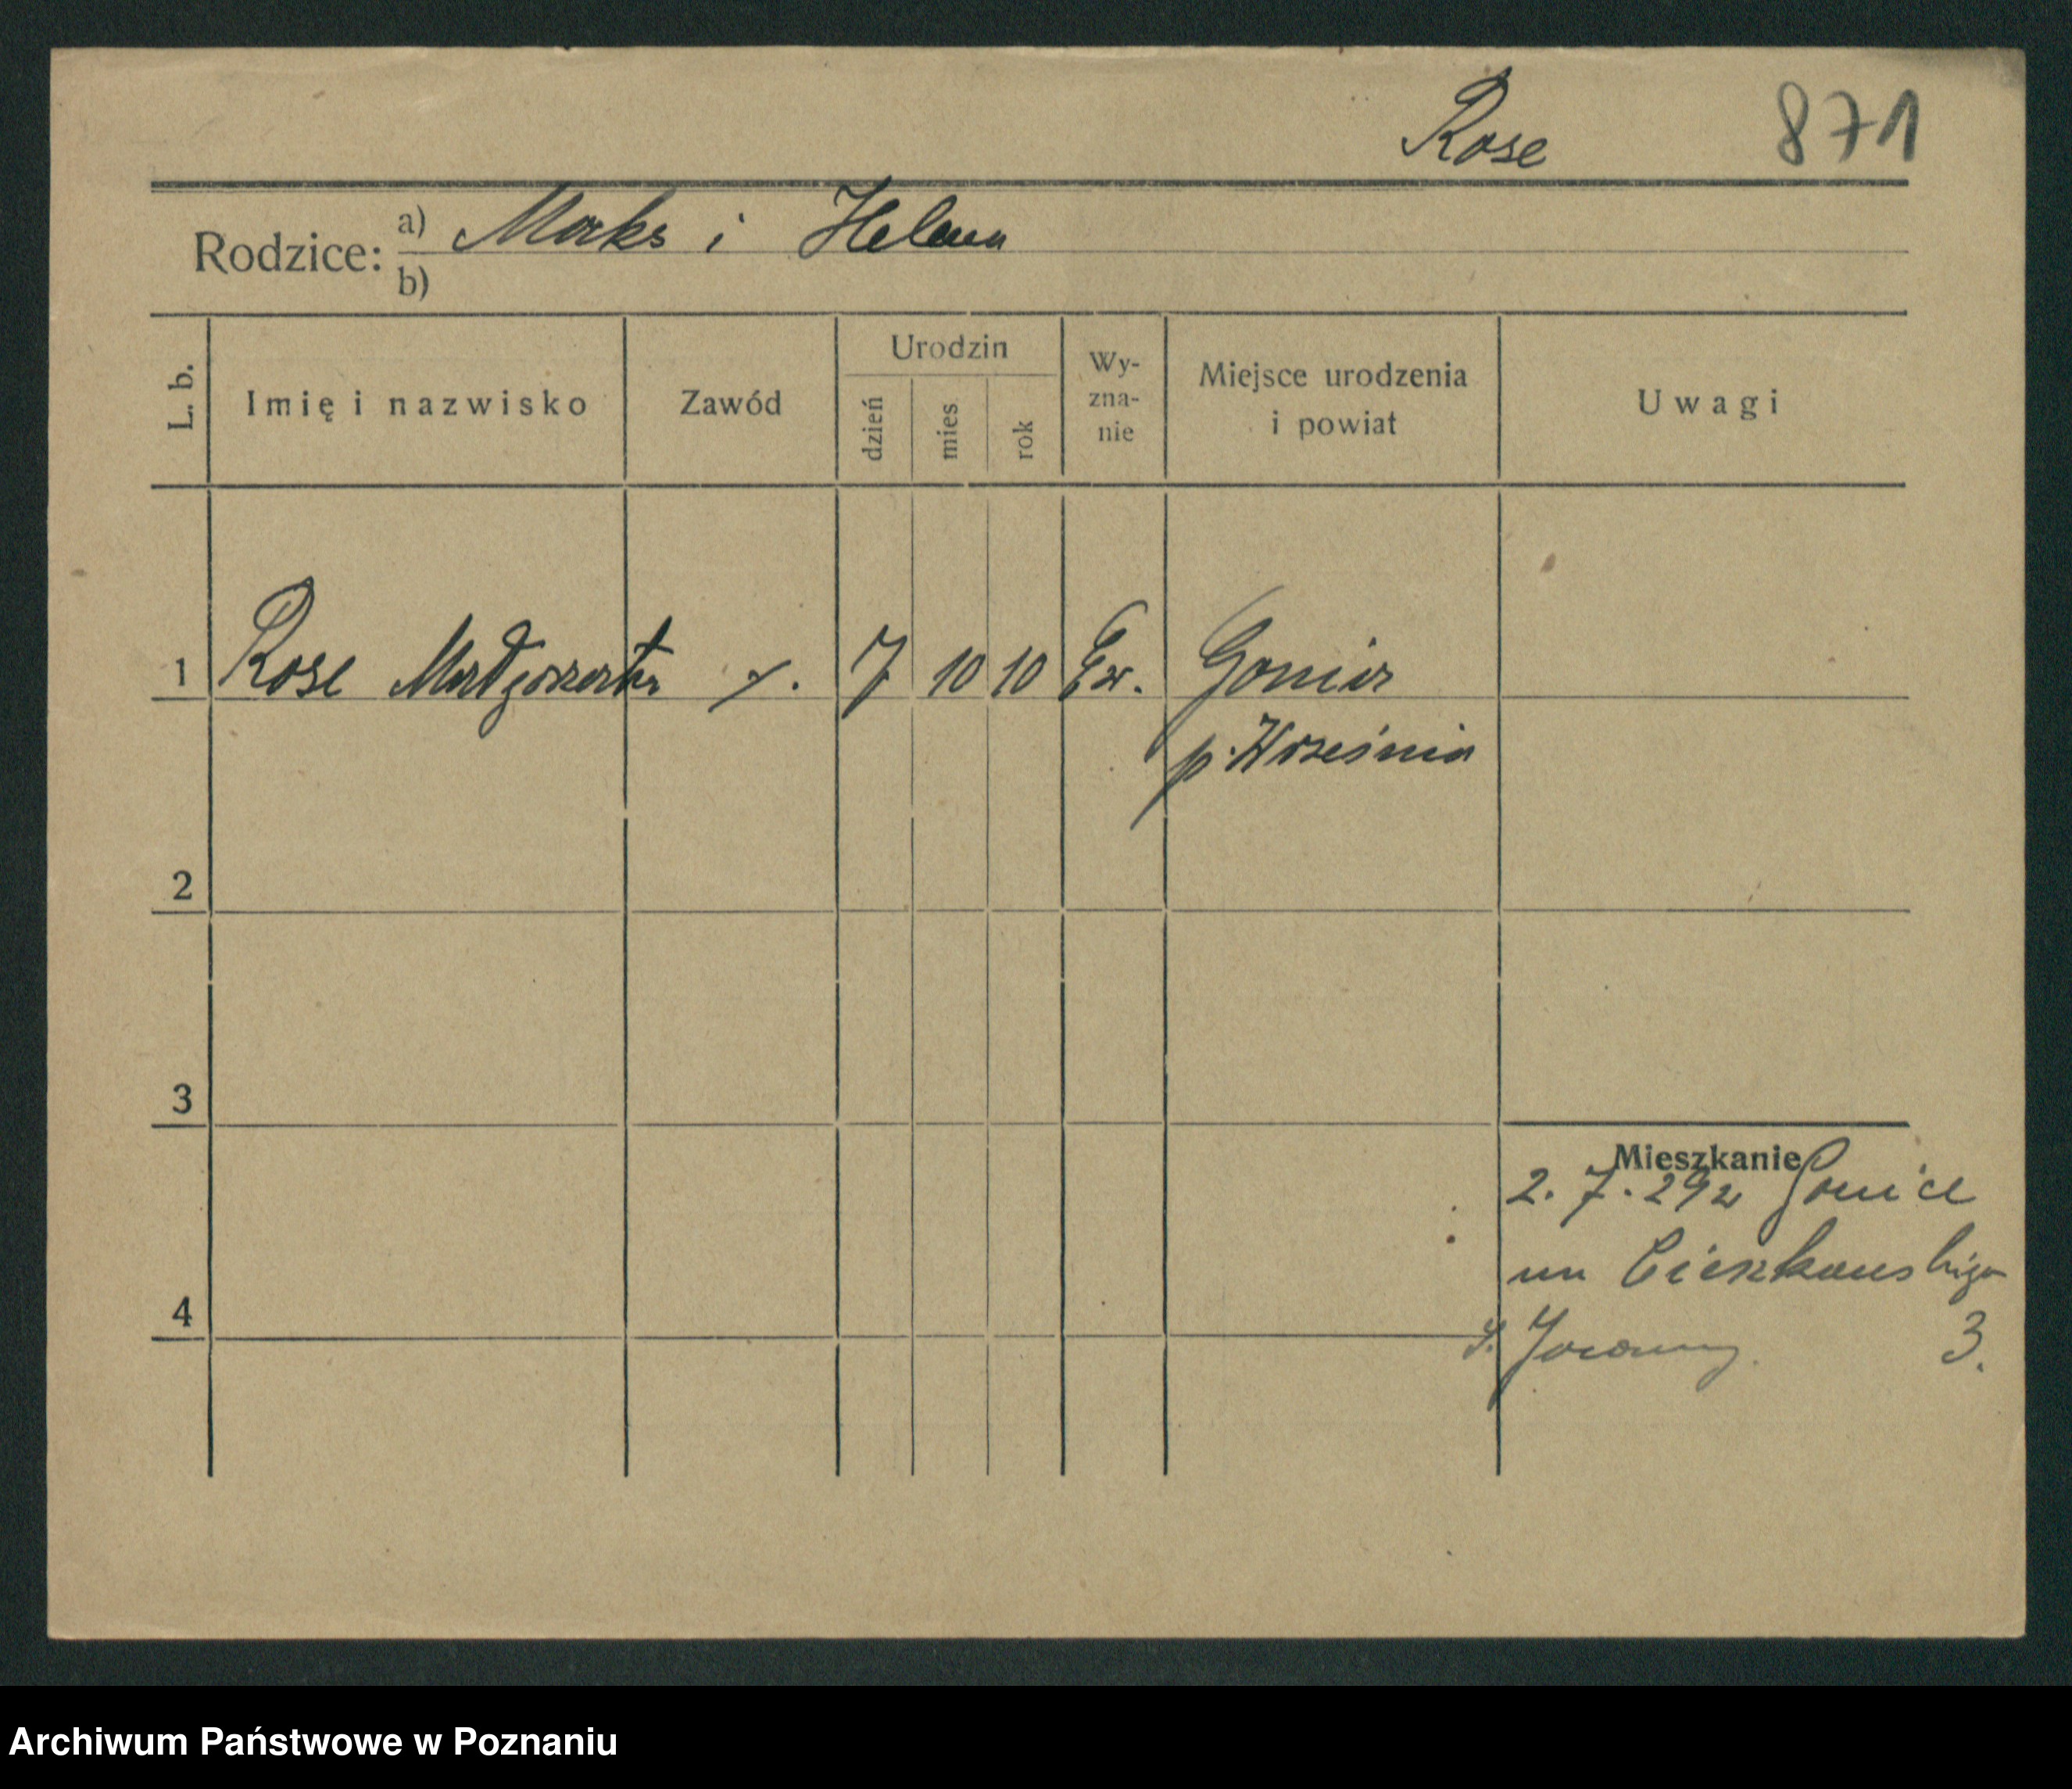 Rose 871
Rodzice: a) Maks i Helena
b)
L. b. Imię i nazwisko Zawód Urodzin dzień mies rok Wy-zna-nie Miejsce urodzenia i powiat Uwagi
1 Rose Małgorzata 7 10 10 Ew. Gonice
p. Września
2
3
Mieszkanie
2. 7. Gonice
Cieszkowskiego
4
3.
Archiwum Państwowe w Poznaniu